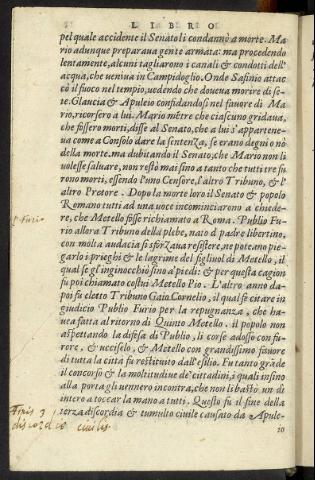 LIBRO
pel quale accidente il Senato li condannò a morte. Ma
rio adunque preparaua gente armata: ma procedendo
lentamente, alcuni tagliarono i canali & condotti dell'
acqua, che ueniua in Campidoglio. Onde Safinio attac
cò il fuoco nel tempio, uedendo che doueua morire di se-
te. Glaucia & Apuleio confidandosi nel fauore di Ma
rio, ricorsero a lui. Mario mẽtre che ciascuno gridaua,
che fossero morti, disse al Senato, che a lui s'appartene-
ua come a Consolo dare la sentenza, se erano degni o nò
della morte. ma dubitando il Senato, che Mario non li
uolesse saluare, non restò mai sino a tanto che tutti tre fu
rono morti, essendo l'uno Censore, l'altro Tribuno, & l'
altro Pretore. Dopo la morte loro il Senato & popolo
Romano tutti ad una uoce incominciarono a chiede-
re, che Metello fosse richiamato a Roma. Publio Fu-
l° furio
rio allora Tribuno della plebe, nato di padre libertino,
con molta audacia si sforzaua resistere, ne poteano pie-
garlo i prieghi & le lagrime del figliuol di Metello, il
qual se gl'inginocchiò sino a piedi: & per questa cagion
fu poi chiamato costui Metello Pio. L'altro anno da-
poi fu eletto Tribuno Gaio Cornelio, il qual fe citare in
giudicio Publio Furio per la repugnanza, che ha-
uea fatta al ritorno di Quinto Metello. il popolo non
aspettando la difesa di Publio, li corse adosso con fu-
rore, & ucciselo, & Metello con grandissimo fauore
di tutta la città fu restituito dall'esilio. Fu tanto grãde
il concorso & la moltitudine de' cittadini, i quali insino
alla porta gli uennero incontra, che non li bastò un dì
intero a toccar la mano a tutti. Questo fu il fine della
terza discordia & tumulto ciuile causato da Apule-
finis 3
discordie ciuilis
io